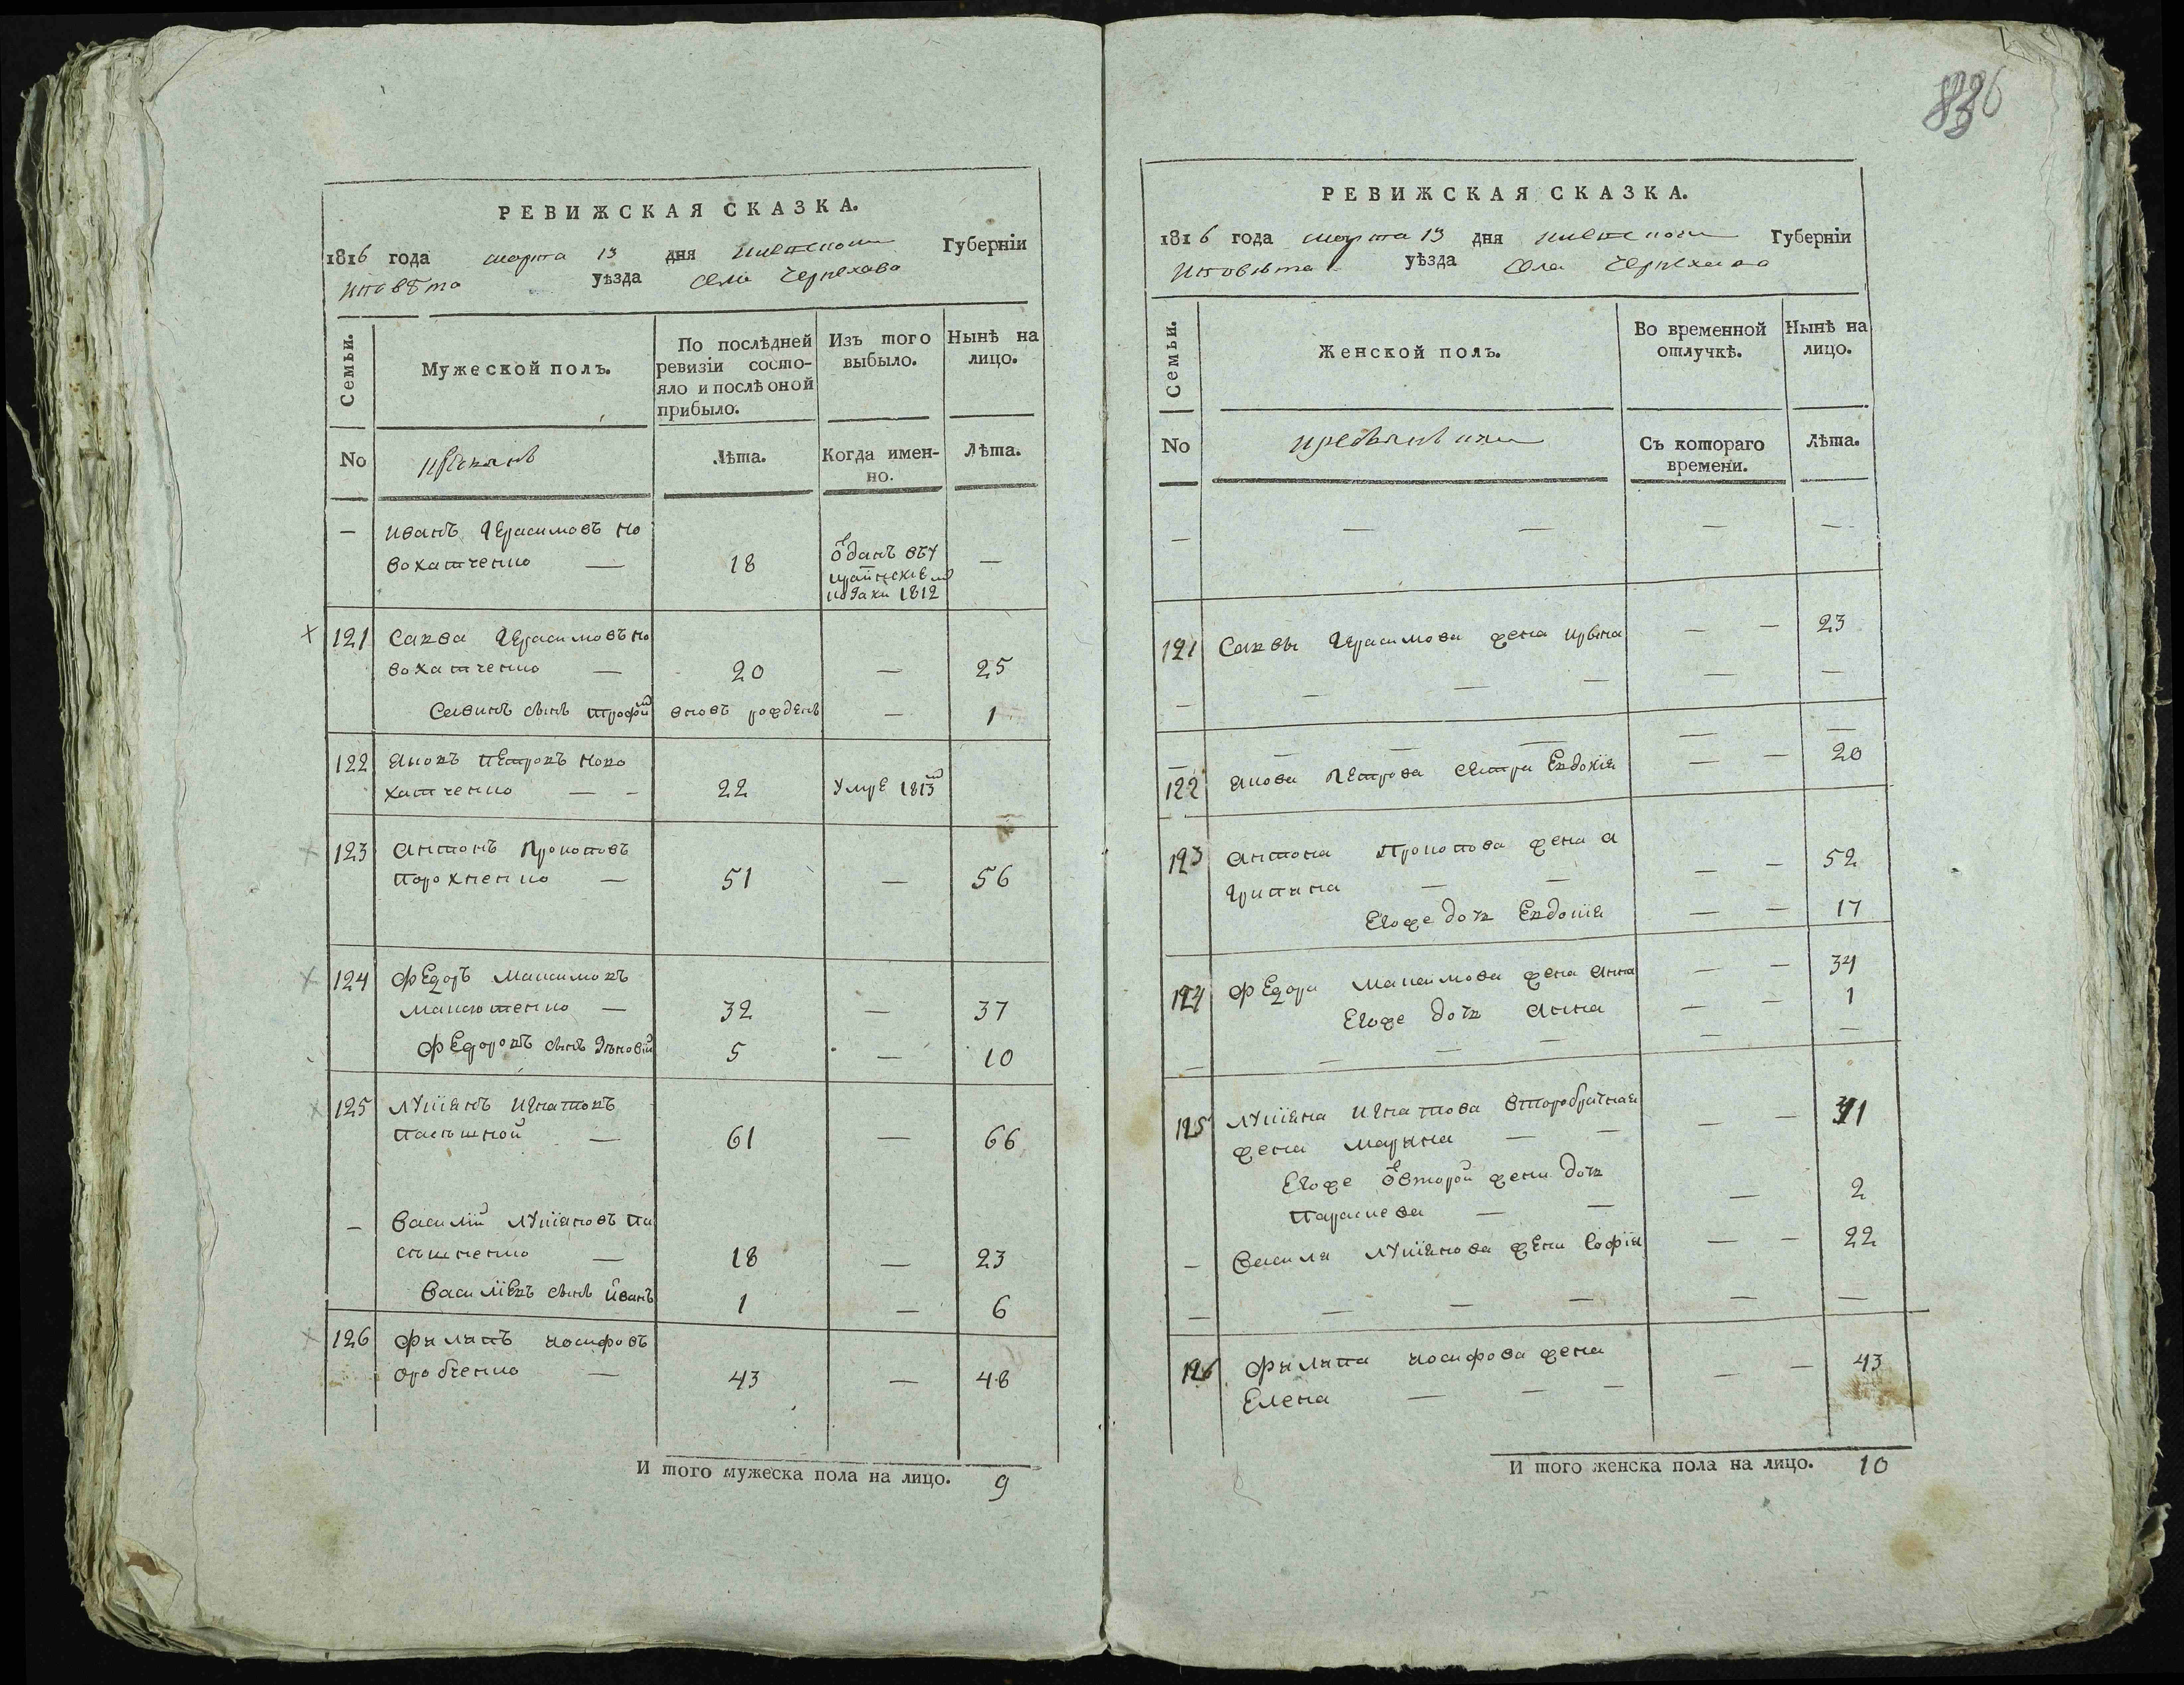 836
РЕВИЖСКАЯ СКАЗКА.
1816 года марта 13 дня Киевской Губернїи
Иповѣта уѣзда села Черпехова
Семьи.
Мужеской полъ.
По послѣдней ревизїи состо-
яло и послѣ оной
прибыло.
Изъ того
выбыло.
Нынѣ на
лицо.
No
Лѣта.
Когда имен-
но.
Лѣта.
— Иванъ Герасимовъ Но
вохатченко — 18 —
ѿданъ въу
1812
121 Савва Герасимовъ Но
вохатченко — 20 — 25
Саввинъ сынъ Трофим вновь рожденъ — 1
122 Яковъ Петровъ Ново
хатченко — - 22 Умре 1813
123 Антонъ Прокоповъ
Порохненко — 51 — 56
124 Федоръ Максимовъ
Максютенко — 32 — 37
Федоровъ сынъ Зѣновїй 5 — 10
125 Лукїянъ Игнатовъ
Пасѣшной — 61 — 66
— Василїй Лукїяновъ Па
сѣшненко — 18 — 23
Василїевъ сынъ Иванъ 1 — 6
126 Филипъ Иосифовъ
Оробченко — 43 — 48
И того мужеска пола на лицо. 9
РЕВИЖСКАЯ СКАЗКА.
1816 года марта 13 дня Киевской Губернїи
Иповѣта уѣзда села Черпехова
Семьи.
Женской полъ.
Во временной
отлучкѣ.
Нынѣ на
лицо.
No
Съ котораго
времени.
Лѣта.
— — — — —
121 Саввы Герасимова жена Ирина — — 23
— — — — — —
— — — — — —
122 Якова Петрова сестра Евдокїя — — 20
123 Антона Прокопова жена А
грипина — — — — 52
Егоже дочь Евдокїя — — 17
124 Федора Максимова жена Анна — — 34
Егоже дочь Анна — — 1
— — — — — —
125 Лукїяна Игнатова второбрачная
жена Марина — — — — 31
Егоже ѿ второй жени дочь
Параскева — — — 2
— Василя Лукїянова жена Софїя — — 22
— — — — — —
126 Филипа Иосифова жена
Елена — — — — — 43
И того женска пола на лицо. 10